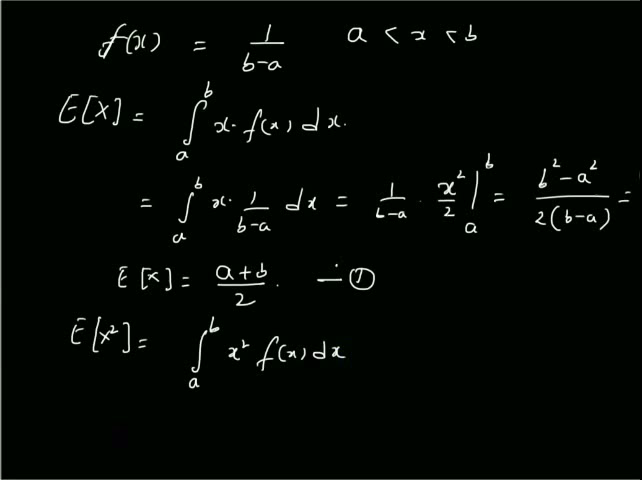 f(x) = 1/(b-a)   a < x < b
E[X] = ∫_a^b x. f(x) dx.
= ∫_a^b x. 1/(b-a) dx = 1/(b-a) . x²/2 |_a^b = (b²-a²)/(2(b-a)) =
E[X] = (a+b)/2. — ①
E[X²] = ∫_a^b x² f(x) dx